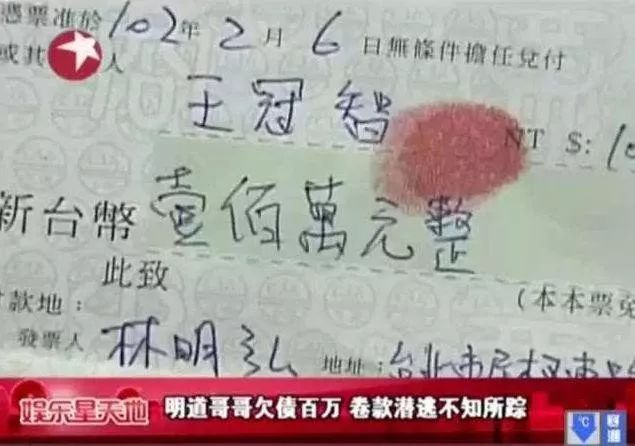 憑票准於102年2月6日無條件擔任兌付
或其 人
王冠智 NT $:10
新台幣壹佰萬元整
此致
付款地: (本本票免
發票人 林明弘 地址:台北市
娱乐星天地 明道哥哥欠债百万 卷款潜逃不知所踪
℃